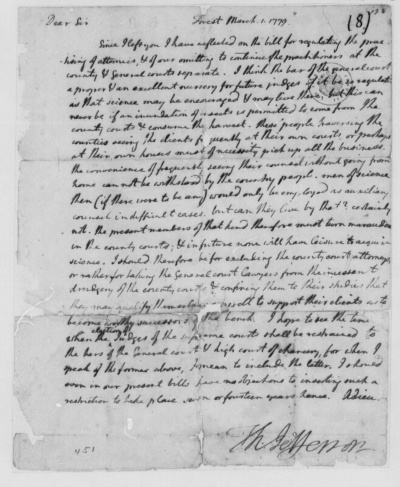 (8)
Dear Sir Forest March. 1. 1779.
Since I left you I have reflected on the bill for regulating the prac-
tising of attornies, & of our omitting to continue the practitioners at the
county & General courts separate. I think the bar of the general court
a proper & an excellent nursery for future judges if it be so regulated
as that science may be encouraged & may live there. but this can
never be if an inundation of insects is permitted to come from the
county courts & consume the harvest. these people traversing the
counties seeing the clients frequently at their own courts or perhaps
at their own houses must of necessity pick up all the business.
the convenience of frequently seeing their counsel without going from
home cannot be withstood by the country people. men of science
then (if there were to be any) would only be employed as auxiliary
counsel in difficult cases. but can they live by that? certainly
not. the present members of that kind therefore must turn marauders
in the county courts; & in future none will have leisure to acquire
science. I should therefore be for excluding the county court attornies,
or rather for taking the General court lawyers from the incessant
drudgery of the county courts & confining them to their studies that
they may qualify themselves as well to support their clients as to
become worthy successors to the bench. I hope to see the time
when the election of Judges of the supreme courts shall be restrained to
the bars of the General court & high court of chancery, for when I
speak of the former above, I mean to include the latter. I should
even in our present bills have no objections to inserting such a
restriction to take place seven or fourteen years hence. Adieu.
Th Jefferson
451